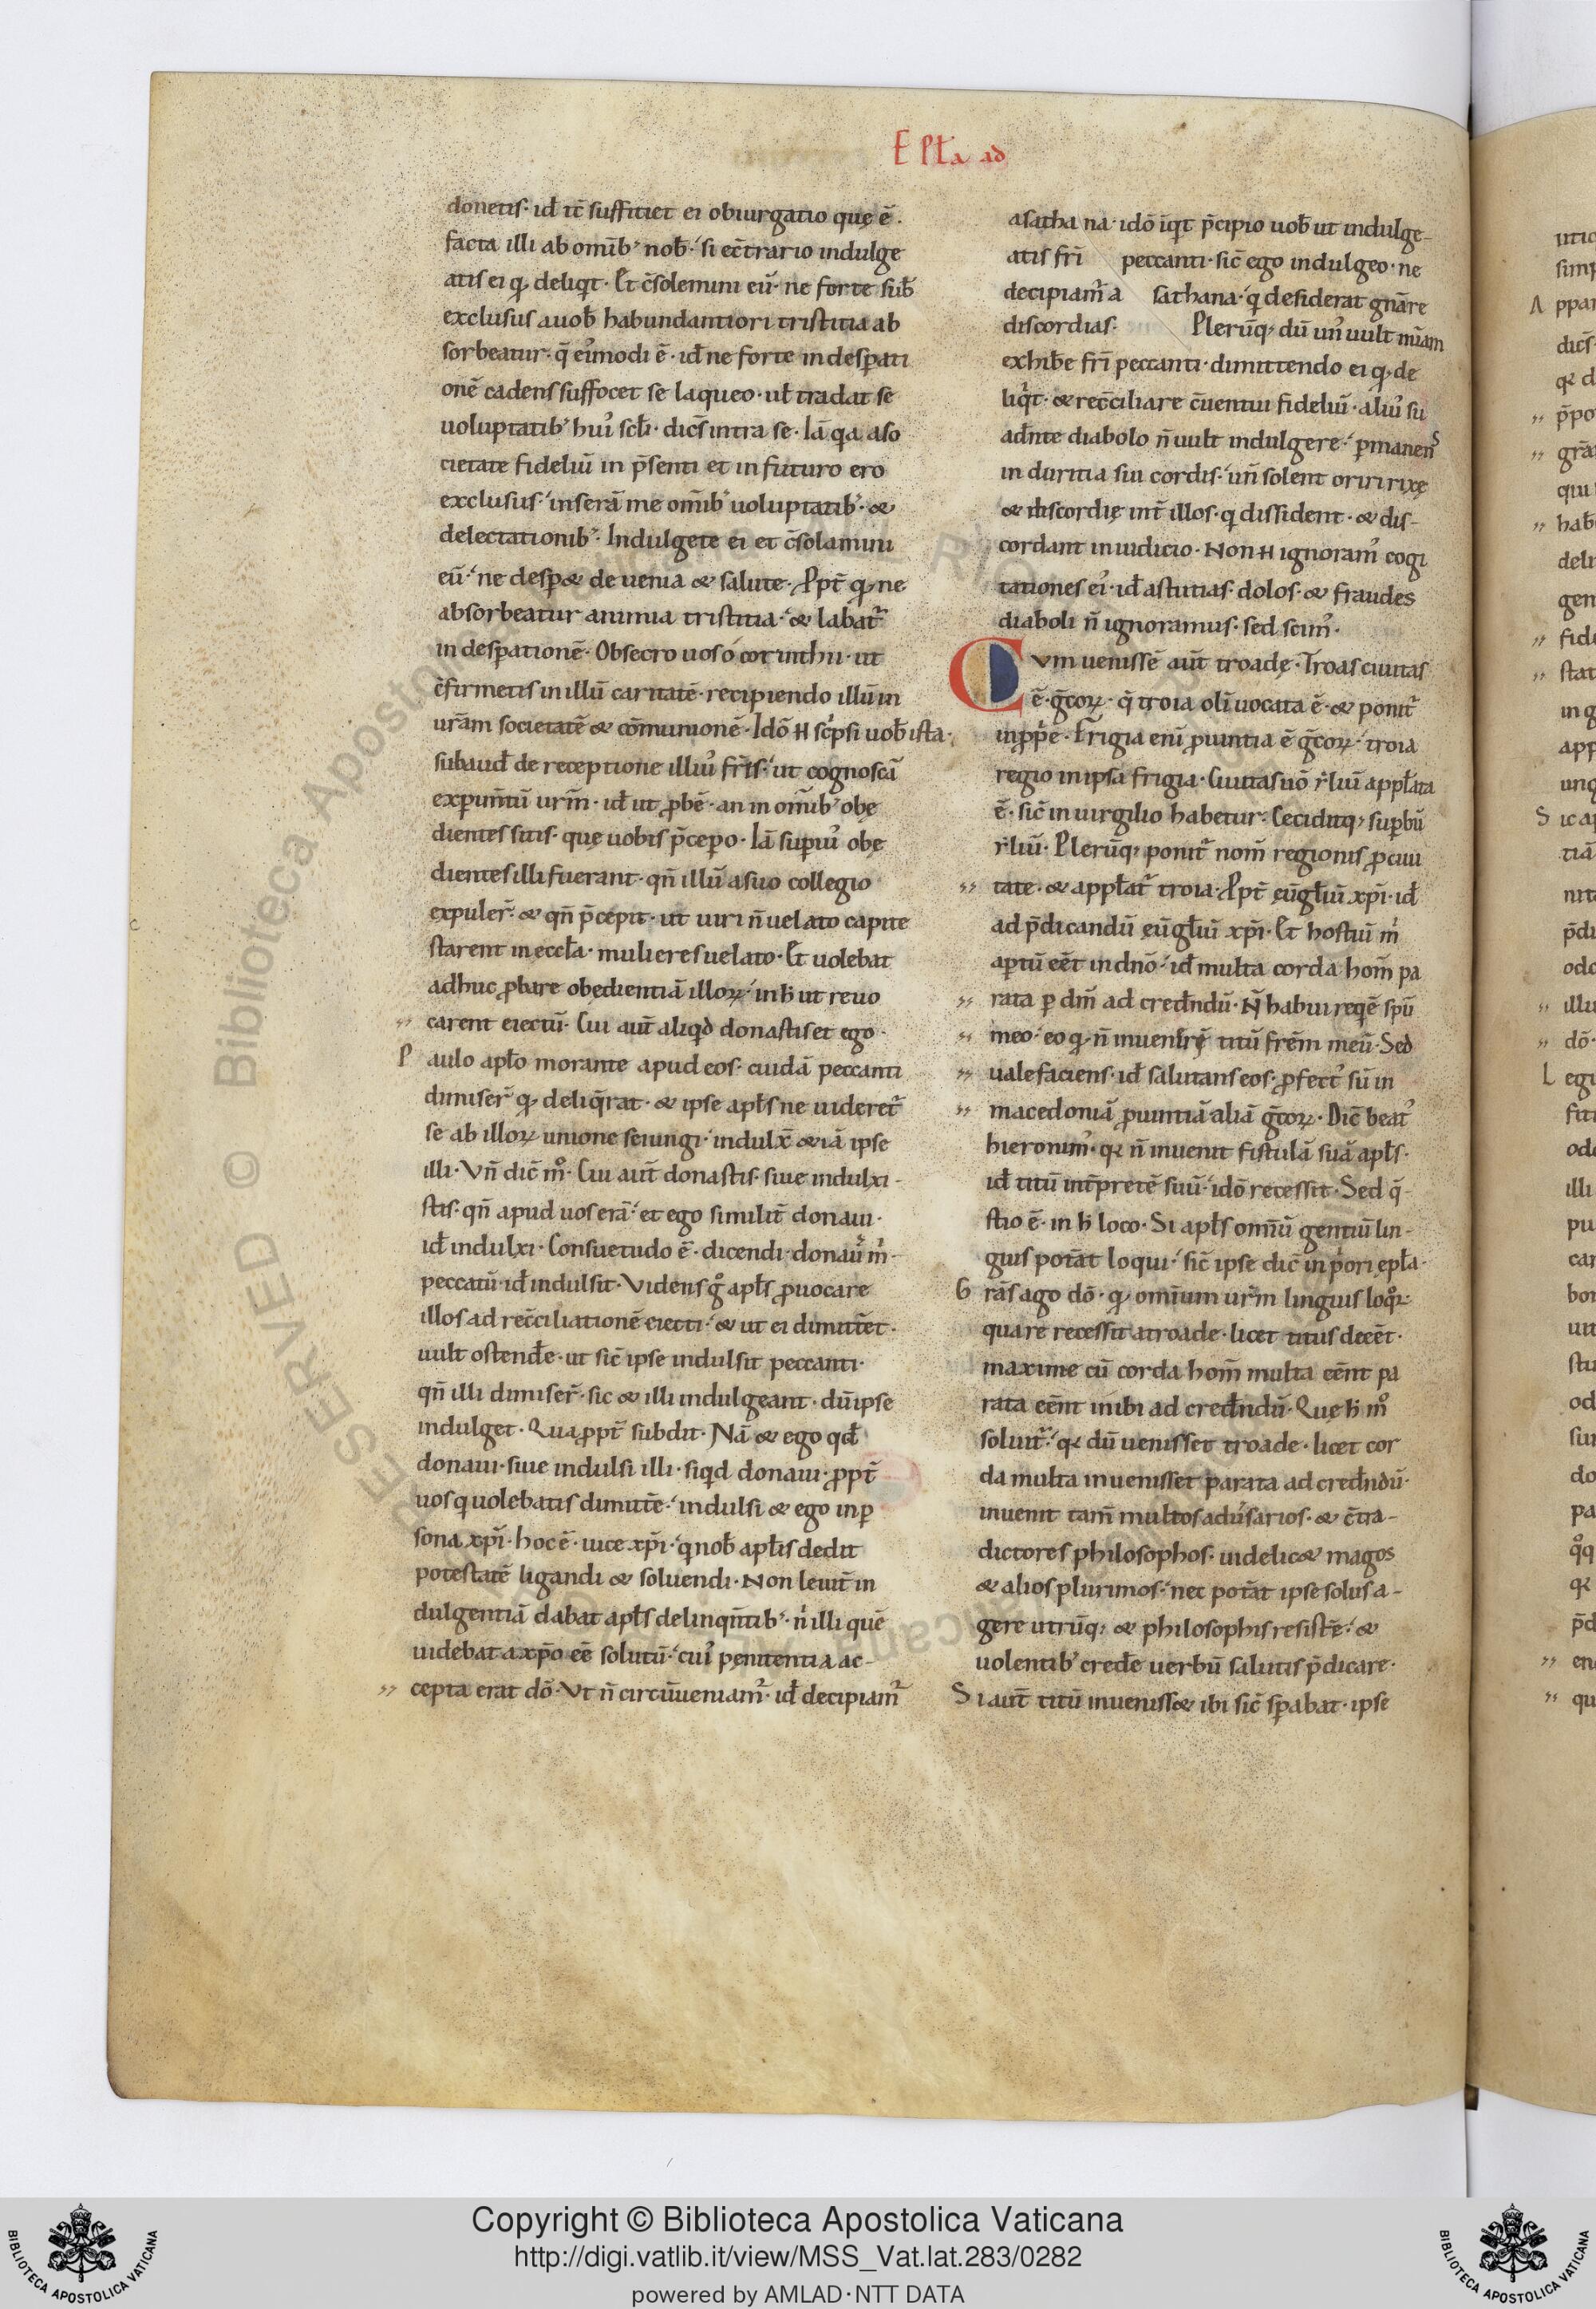 EPŁa ad
donetis· id̄ ÷ sufficiet ei obiurgatio quę ē·
facta illi ab omīb; nob̄· si ec̄trario indulge
atis ei qd̛ deliqt· Et c̄solemini eū· ne forte sub̄
exclusus a uob̄ habundantiori tristitia ab
sorbeatur· q̄ ei᾽modi ē· id̄ ne forte in despati
onē cadens suffocet se laqueo· ul̄ tradat se
uoluptatib᾽ hui᾽ scl̄i· dic̄s intra se· Iā qa a so
cietate fideliū in p̄senti et in futuro ero
exclusus· inserā me om̄ib᾽ uoluptatib᾽· &
delectationib᾽· Indulgete ei et c̄solamini
eū· ne desp& de uenia & salute· Ppt̄ qd̛ ne
absorbeatur animia tristitia· & labat᷑
in despationē· Obsecro uos ó corinthii· ut
c̄firmetis in illū caritatē· recipiendo illū in
ur̄am societatē & cōmunionē· Idō H sc̛psi uob̄ ista·
subaud̄ de receptione illiu᾽ fr̄is· ut cognoscā
exp̲im̄tū urm̄· id̄ ut ꝓbē· an in om̄ib᾽ obę
dientes sitis· quę uobis p̄cepo· Iā sup̲iu᾽ obę
dientes illi fuerant· qn̄ illū a suo collegio
expuler̄· & qn̄ p̄cepit· ut uiri n̄ uelato capite
starent in eccl̄a· mulieres uelato· Et uolebat
adhuc ꝓbare obędientiā illoꝝ· in h̄ ut reuo
carent eiectū· Cui aut̄ aliqd donastis et ego·
Paulo apl̄o morante apud eos· cuidā peccanti
dimiser̄ qd̛ deliq̄rat· & ipse apl̄s ne uideret᷑
se ab illoꝝ unione seiungi· indulx̄ & iā ipse
illi· Vn̄ dic̄ m̊· Cui aut̄ donastis· siue indulxi-
stis· qn̄ apud uos erā· et ego similit̄ donaui·
id̄ indulxi· Consuetudo ē· dicendi· donau᾽ m̛·
peccatū· id̄ indulsit· Videns g̊ apl̄s ꝓuocare
illos ad rec̄ciliationē eiecti· & ut ei dimitt̄et·
uult ostend̄e· ut sic̄ ipse indulsit peccanti·
qn̄ illi dimiser̄· sic & illi indulgeant· dū ipse
indulget· Qua ꝓpt̄ subdit· Nā & ego qd̄
donaui· siue indulsi illi· siqd donaui· ꝓpt̄
uos q uolebatis dimitt̄e· indulsi & ego in p̲
sona xp̄i· hoc ē· uice xp̄i· q nob̄ apl̄is dedit
potestatē ligandi & soluendi· Non leuit̄ in
dulgentiā dabat apl̄s delinqn̄tib᾽· n̛ illi quē
uidebat a xp̄o eē solutū· cui᾽ penitentia ac-
cepta erat dō· Vt n̄ circūueniam᷑· id̄ decipiam᷑
a satha na· idō iq̄t p̄cipio uob̄ ut indulge-
atis fri̅ peccanti· sic̄ ego indulgeo· ne
decipiam᷑ a sathana· q desiderat gn̄are
discordias· Plerūq; dū un᾽ uult mīam
exhib̄e fri̅ peccanti· dimittendo ei qd̛ de
liq̛t· & rec̄ciliare c̄uentui fideliū· aliu᾽ su
ad̄nte diabolo n̄ uult indulgere· p̲manens
in duritia sui cordis· un̄ solent oriri rixę
& discordię int̄ illos· q dissident· & dis-
cordant in iudicio· Non H ignoram᾽ cogi
tationes ei᾽· id̄ astutias· dolos· & fraudes
diaboli n̄ ignoramus· sed scim᾽·
Cvm uenissē aut̄ troadę· Troas ciuitas
ē· gc̄oꝝ· q̄ troia oli̅ uocata ē· & ponit᷑
in ꝓp̛ē· Frigia enī ꝓuintia ē gc̄oꝝ· troia
regio in ipsa frigia· Ciuitas uō ẏliū appl̄ata
ē· sic̄ in uirgilio habetur· Ceciditq; sup̲bū
ẏliū· Plerūq; ponit᷑ nom̄ regionis ꝓ ciui
tate· & appl̄at᷑ troia· Ppt̄ eūgl̄iū xp̄i· id̄
ad p̄dicandū eūgl̄iū xp̄i· Et hostiū m̛
ap̲tū eēt in dn̄o· id̄ multa corda hom̄ pa
rata p̲ dm̄ ad cred̄ndū· N̄ habui reqē spū
meo· eo qd̛ n̄ inuenirē titū frēm meū· Sed
ualefaciens· id̄ salutans eos· ꝓfect᾽ sū in
macedoniā ꝓuintiā aliā gc̄oꝝ· Dic̄ beat᾽
hieronim᾽· qꝛ n̄ inuenit fistulā suā apl̄s·
id̄ titū int̄pretē suū· idō recessit· Sed q̄-
stio ē· in h̄ loco· Si apl̄s omīū gentiū lin-
guis pot̄at loqui· sic̄ ipse dic̄ in p̛ori epl̄a·
Grās ago dō· qd̛ omīum urm̄ linguis loq̊ꝛ·
quare recessit a troade· licet titus deeēt·
maxime cū corda hom̄ multa eēnt pa
rata eēnt inibi ad cred̄ndū· Quę h̄ m̊
soluit᷑· qꝛ dū uenisset troade· licet cor
da multa inuenisset parata ad cred̄ndū·
inuenit tam̄ multos adu᾽sarios· & c̄tra-
dictores philosophos· uidelic& magos
& alios plurimos· nec pot̄at ipse solus a-
gere utrūq; & philosophis resist̄e· &
uolentib᾽ cred̄e uerbū salutis p̄dicare·
Si aut̄ titū inueniss& ibi sic̄ sp̲abat· ipse
Copyright © Biblioteca Apostolica Vaticana
http://digi.vatlib.it/view/MSS_Vat.lat.283/0282
powered by AMLAD·NTT DATA